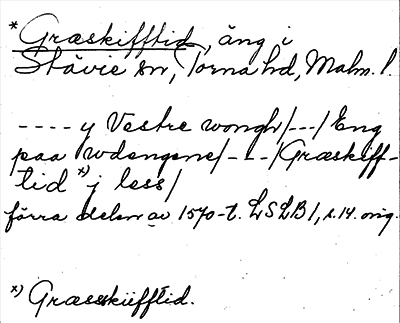 * Græskifftid, äng i
Stävie sn, Torna hd, Malm. l.
---- y Vestre wongh/---/Eng
paa wdengene/---/Græskiff-
tid x) j less/
förra delen av 1570-t. LSLB1, s.14. orig.
x) Græsskiifftid.